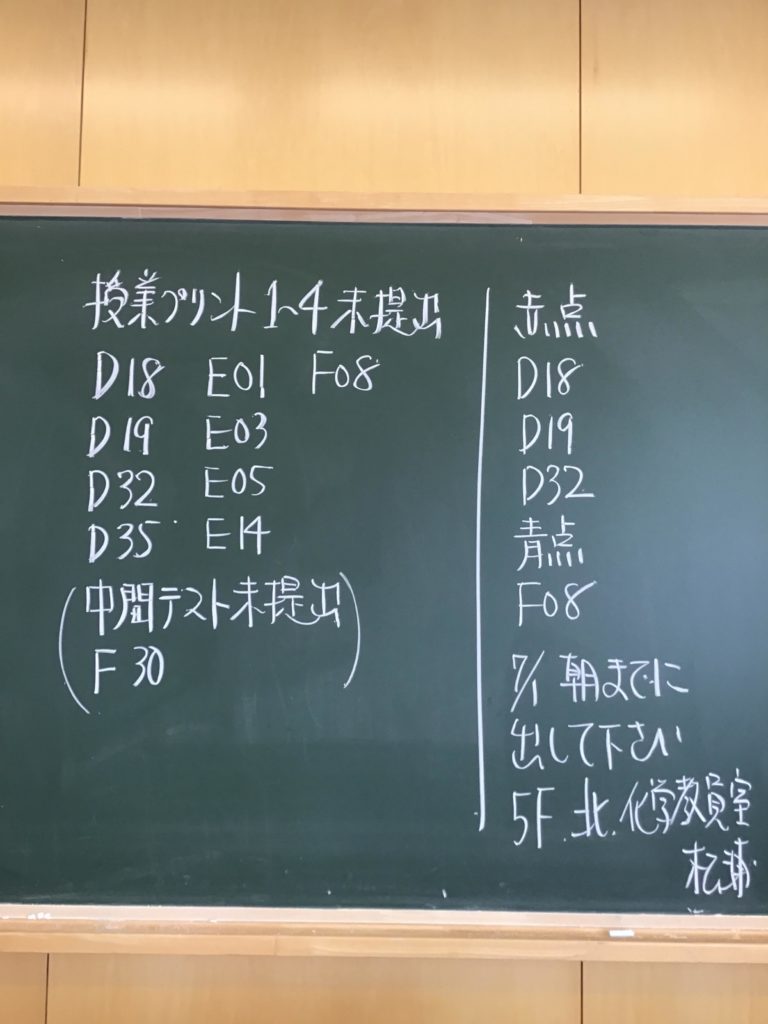 授業プリント1~4未提出
D18 E01 F08
D19 E03
D32 E05
D35 E14
(中間テスト未提出
F30)
赤点
D18
D19
D32
青点
F08
7/1 朝までに
出して下さい
5F.北.化学教員室
松浦